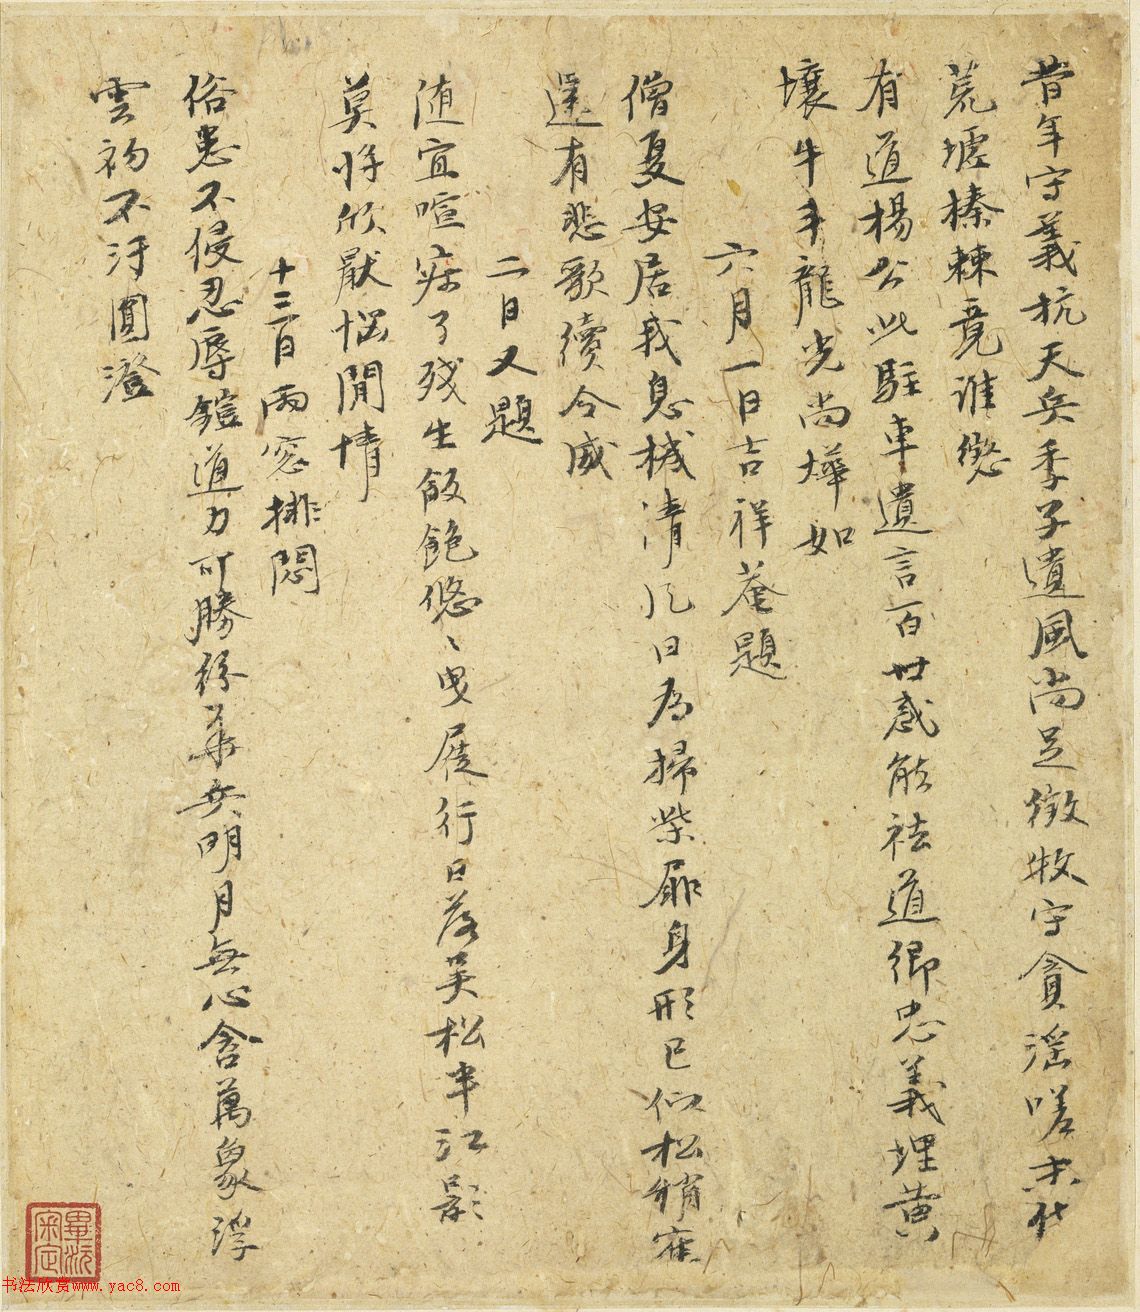 昔年守義抗天兵季子遺風尚足徵牧守貪淫嗟未代
荒墟榛棘竟誰懲
有道楊公此駐車遺言百世感能祛道卿忠義埋黄
壤牛斗龍光尚燁如
六月一日吉祥菴題
僧夏安居我息機清風日為掃柴扉身形已似松稍寉
還有悲歌續令威
二日又題
随宜喧寂了殘生飯飽悠〻曳屐行日落吴松半江影
莫将欣厭惱閒情
十三日雨窓排悶
俗患不侵忍辱鎧道力可勝紛華兵明月無心含萬象浮
雲初不汙圓澄
畢沅
審定
书法欣赏www.yac8.com